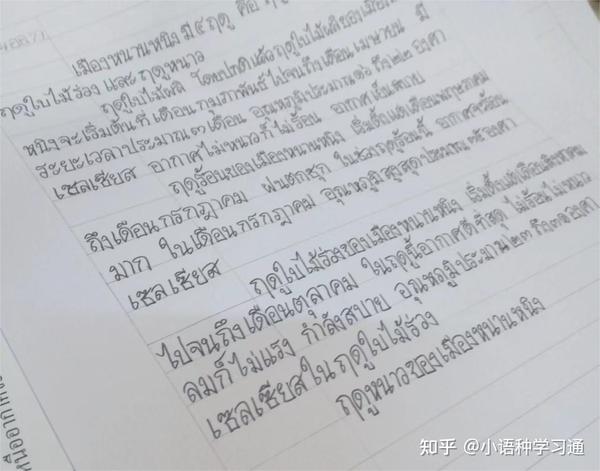 เมืองหนานหนิง มี ๔ ฤดู คือ
ฤดูใบไม้ร่วง และ ฤดูหนาว
ฤดูใบไม้ผลิ โดยปกติแล้ว ฤดูใบไม้ผลิของเมือง
หนิงจะเริ่มต้นที่ เดือน กุมภาพันธ์ ไปจนถึงเดือน เมษายน มี
ระยะเวลาประมาณ ๓ เดือน อุณหภูมิประมาณ ถึง ๒๒ องศา
เซลเซียส อากาศ ไม่หนาวก็ไม่ร้อน อากาศเย็นสบาย
ฤดูร้อนของเมืองหนานหนิง เริ่มตั้งแต่เดือนพฤษภาคม
ถึงเดือน กรกฎาคม ฝนตกชุก ในช่วงฤดูร้อนนี้ อากาศจะร้อน
มาก ในเดือน กรกฎาคม อุณหภูมิ สูงสุดประมาณ องศา
เซลเซียส
ฤดูใบไม้ร่วงของเมืองหนานหนิง เริ่มตั้งแต่เดือนสิงหาคม
ไปจนถึงเดือนตุลาคม ในฤดูนี้อากาศดีที่สุด ไม่ร้อนไม่หนาว
ลมก็ไม่แรง กำลังสบาย อุณหภูมิประมาณ ๒๓ ถึง องศา
เซลเซียสใน ฤดูใบไม้ร่วง
ฤดูหนาวของเมืองหนานหนิง
知乎 @小语种学习通